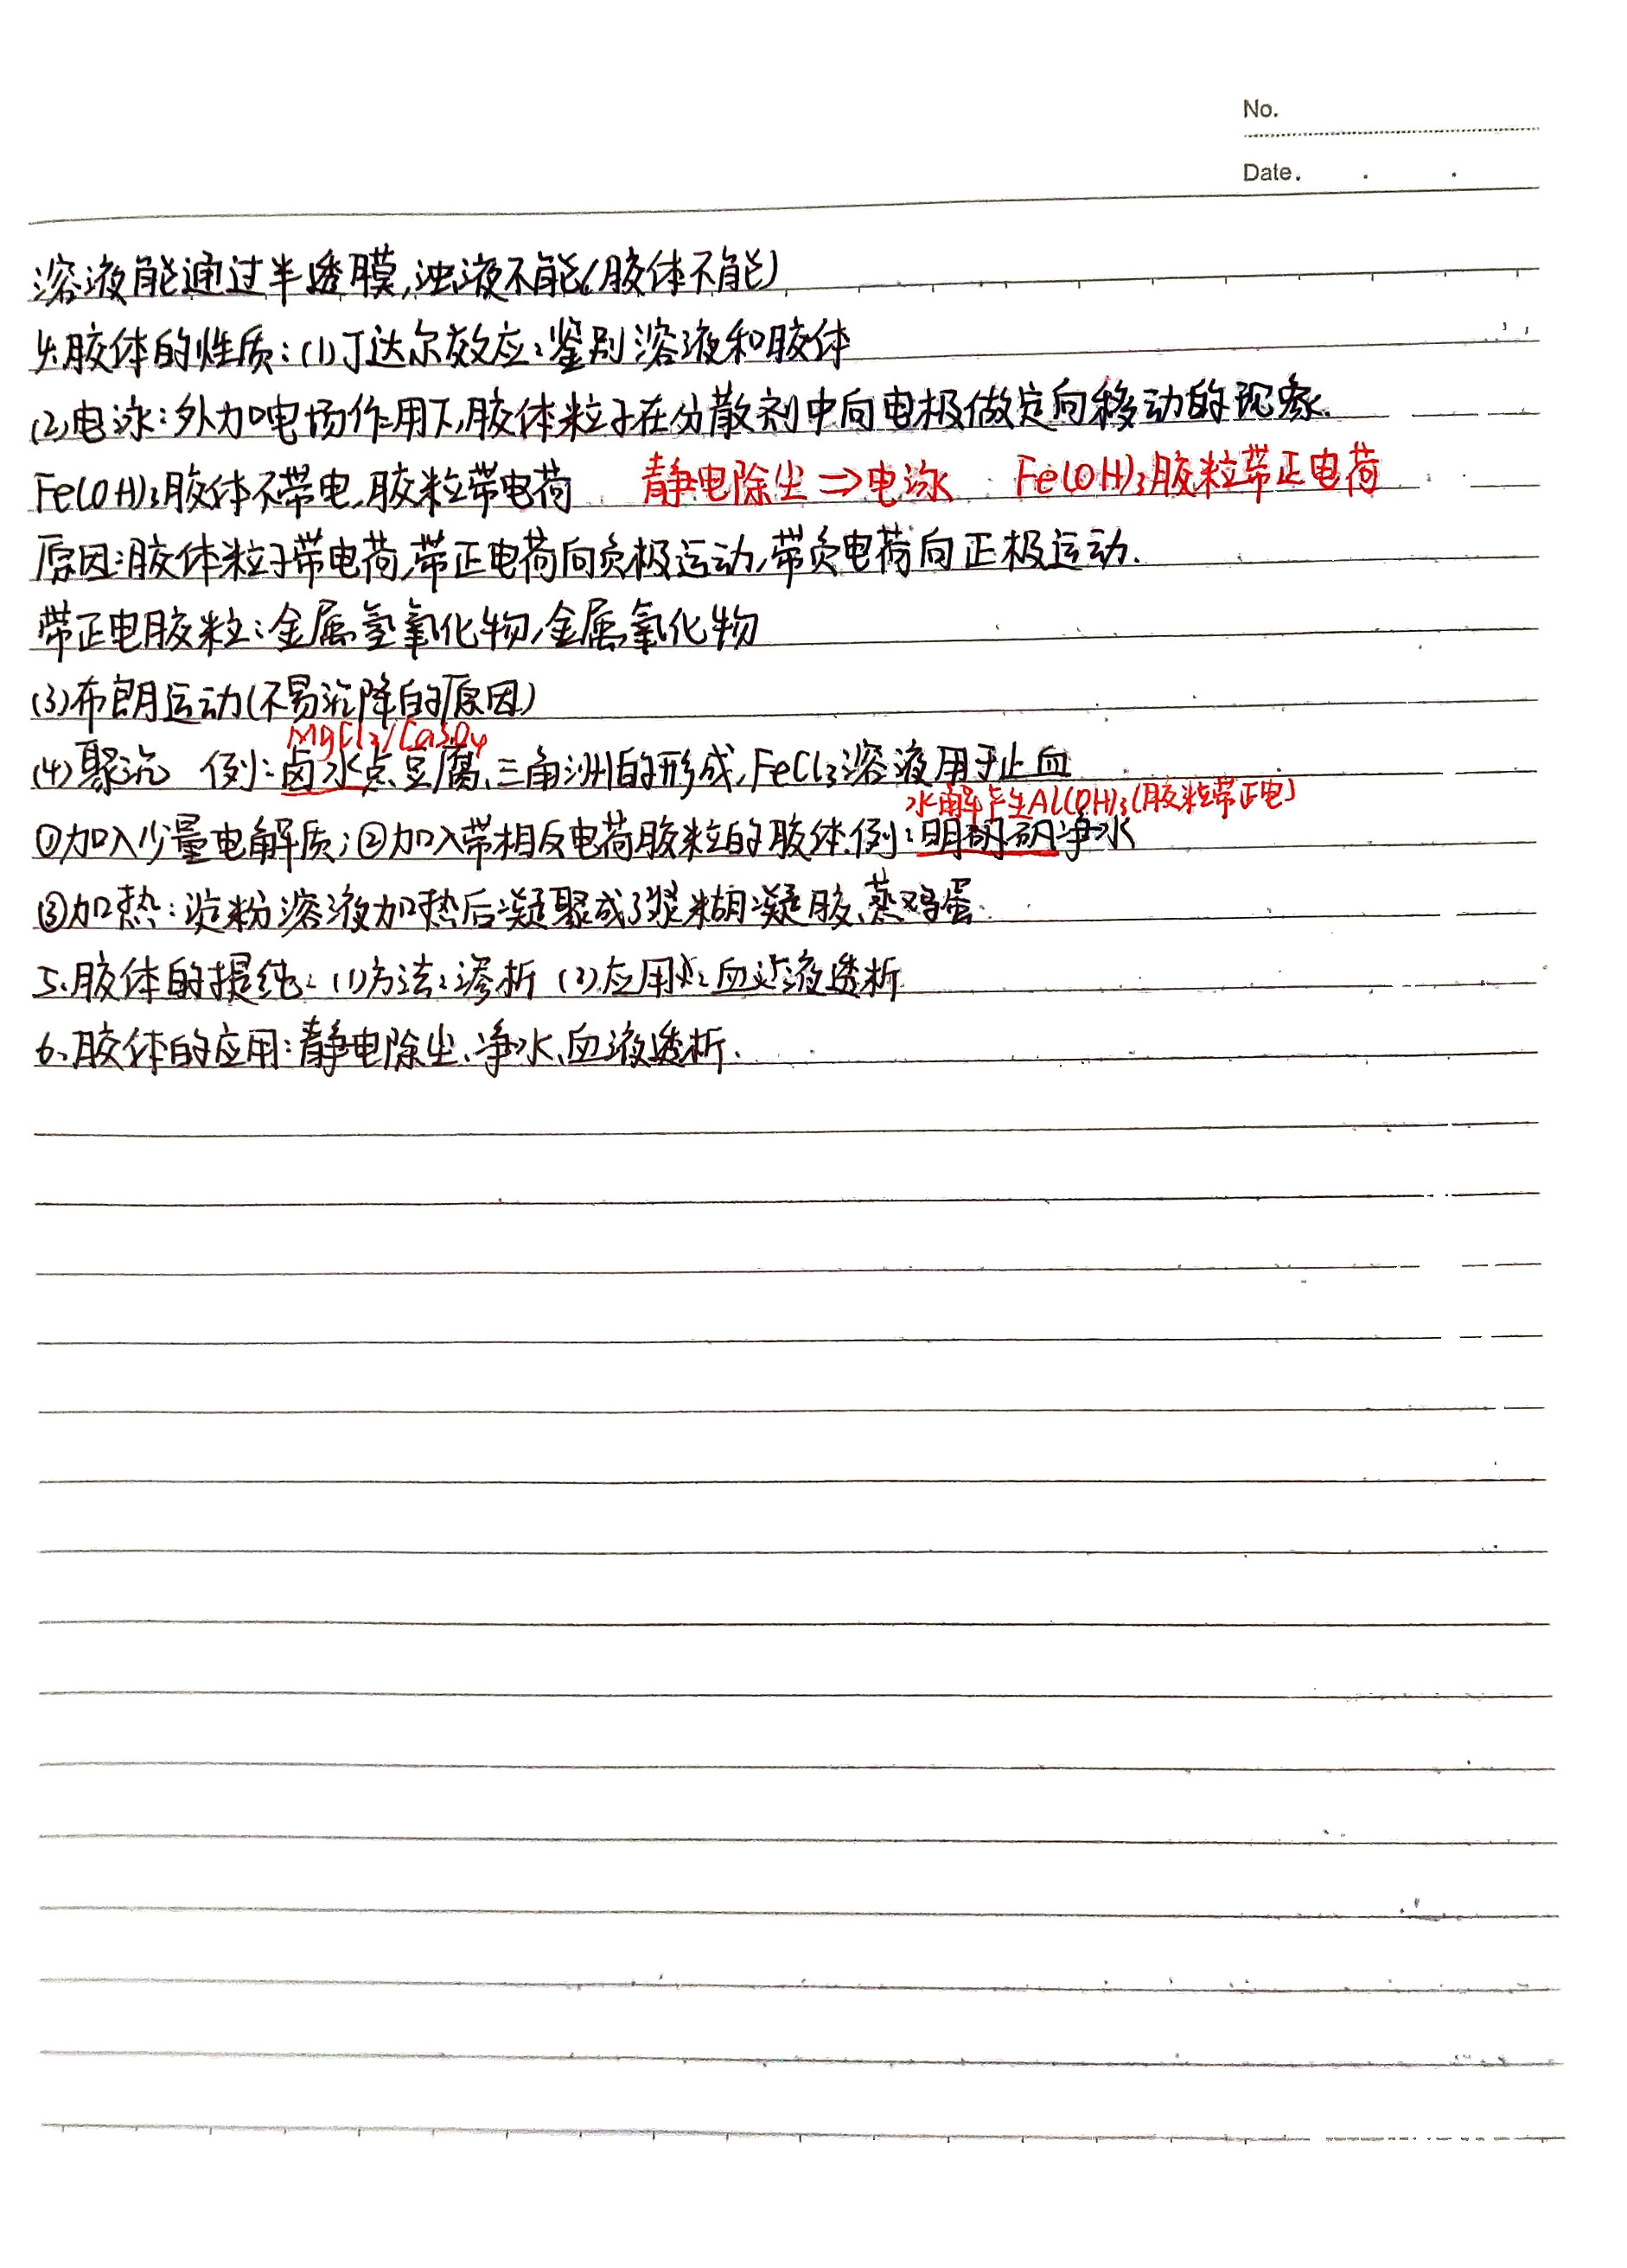 No.
Date.
溶液能通过半透膜,浊液不能(胶体不能)
4.胶体的性质:(1)丁达尔效应:鉴别溶液和胶体
(2)电泳:外加电场作用下,胶体粒子在分散剂中向电极做定向移动的现象.
Fe(OH)3胶体不带电,胶粒带电荷 静电除尘⇒电泳 Fe(OH)3胶粒带正电荷
原因:胶体粒子带电荷,带正电荷向负极运动,带负电荷向正极运动.
带正电胶粒:金属氢氧化物,金属氧化物
(3)布朗运动(不易沉降的原因)
MgCl2/CaSO4
(4)聚沉 例:卤水点豆腐、三角洲的形成,FeCl3溶液用于止血
水解产生Al(OH)3(胶粒带正电)
①加入少量电解质;②加入带相反电荷胶粒的胶体.例:明矾净水
③加热:淀粉溶液加热后凝聚成了浆糊凝胶、蒸鸡蛋
5.胶体的提纯:(1)方法:渗析 (2)应用:血液透析
6.胶体的应用:静电除尘、净水、血液透析.